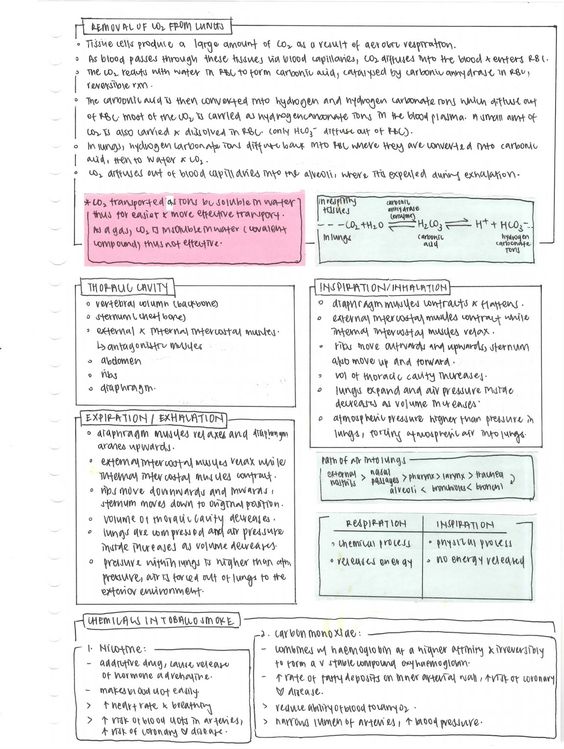 REMOVAL OF CO2 FROM LUNGS
Tissue cells produce a large amount of CO2 as a result of aerobic respiration.
As blood passes through these tissues via blood capillaries, CO2 diffuses into the blood & enters RBC.
The CO2 reacts with water in RBC to form carbonic acid, catalysed by carbonic anhydrase in RBC,
reversible rxn.
The carbonic acid is then converted into hydrogen and hydrogen carbonate ions which diffuse out
of RBC. most of the CO2 is carried as hydrogencarbonate ions in the blood plasma. A small amt of
CO2 is also carried & dissolved in RBC. (only HCO3- diffuse out of RBC).
In lungs, hydrogen carbonate ions diffuse back into RBC where they are converted into carbonic
acid, then to water & CO2.
CO2 diffuses out of blood capillaries into the alveoli, where it is expelled during exhalation.
* CO2 transported as ions bc soluble in water
thus for easier & more effective transport.
As a gas, CO2 is insoluble in water (covalent
compound) thus not effective.
in respiring tissues
carbonic anhydrase (enzyme)
--- CO2 + H2O ⇌ H2CO3 ⇌ H+ + HCO3-..
in lungs
carbonic acid
hydrogen carbonate ions
THORACIC CAVITY
vertebral column (backbone)
sternum (chest bone)
external & internal intercostal muscles
↳ antagonistic muscles
abdomen
ribs
diaphragm.
INSPIRATION/INHALATION
diaphragm muscles contracts & flattens.
external intercostal muscles contract while
internal intercostal muscles relax.
ribs move outwards and upwards, sternum
also move up and forward.
vol of thoracic cavity increases.
lungs expand and air pressure inside
decreases as volume increases.
atmospheric pressure higher than pressure in
lungs, forcing atmospheric air into lungs.
EXPIRATION / EXHALATION
diaphragm muscles relaxes and diaphragm
arches upwards.
external intercostal muscles relax while
internal intercostal muscles contract.
ribs move downwards and inwards,
sternum moves down to original position.
volume of thoracic cavity decreases.
lungs are compressed and air pressure
inside increases as volume decreases.
pressure within lungs is higher than atm
pressure, air is forced out of lungs to the
exterior environment.
Path of air into lungs
external nostrils > nasal passages > pharynx > larynx > trachea
alveoli < bronchioles < bronchi
RESPIRATION INSPIRATION
chemical process physical process
releases energy no energy released
CHEMICALS IN TOBACCO SMOKE
1. Nicotine:
- addictive drug, cause release
of hormone adrenaline.
- makes blood clot easily
> ↑ heart rate & breathing
> ↑ risk of blood clots in arteries,
↑ risk of coronary ♡ disease.
2. carbon monoxide:
- combines w/ haemoglobin at a higher affinity & irreversibly
to form a v stable compound oxyhaemoglobin.
- ↑ rate of fatty deposits on inner arterial wall, ↑ risk of coronary
♡ disease.
> reduce ability of blood to carry O2.
> narrows lumen of arteries, ↑ blood pressure.